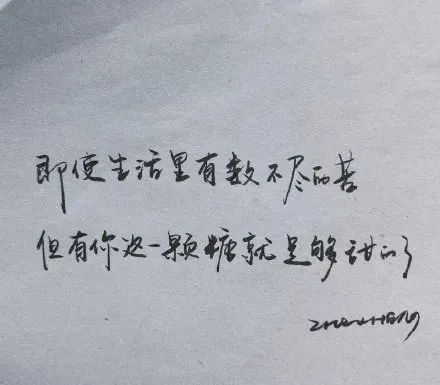 即使生活里有数不尽的苦
但有你这一颗糖就是够甜的了